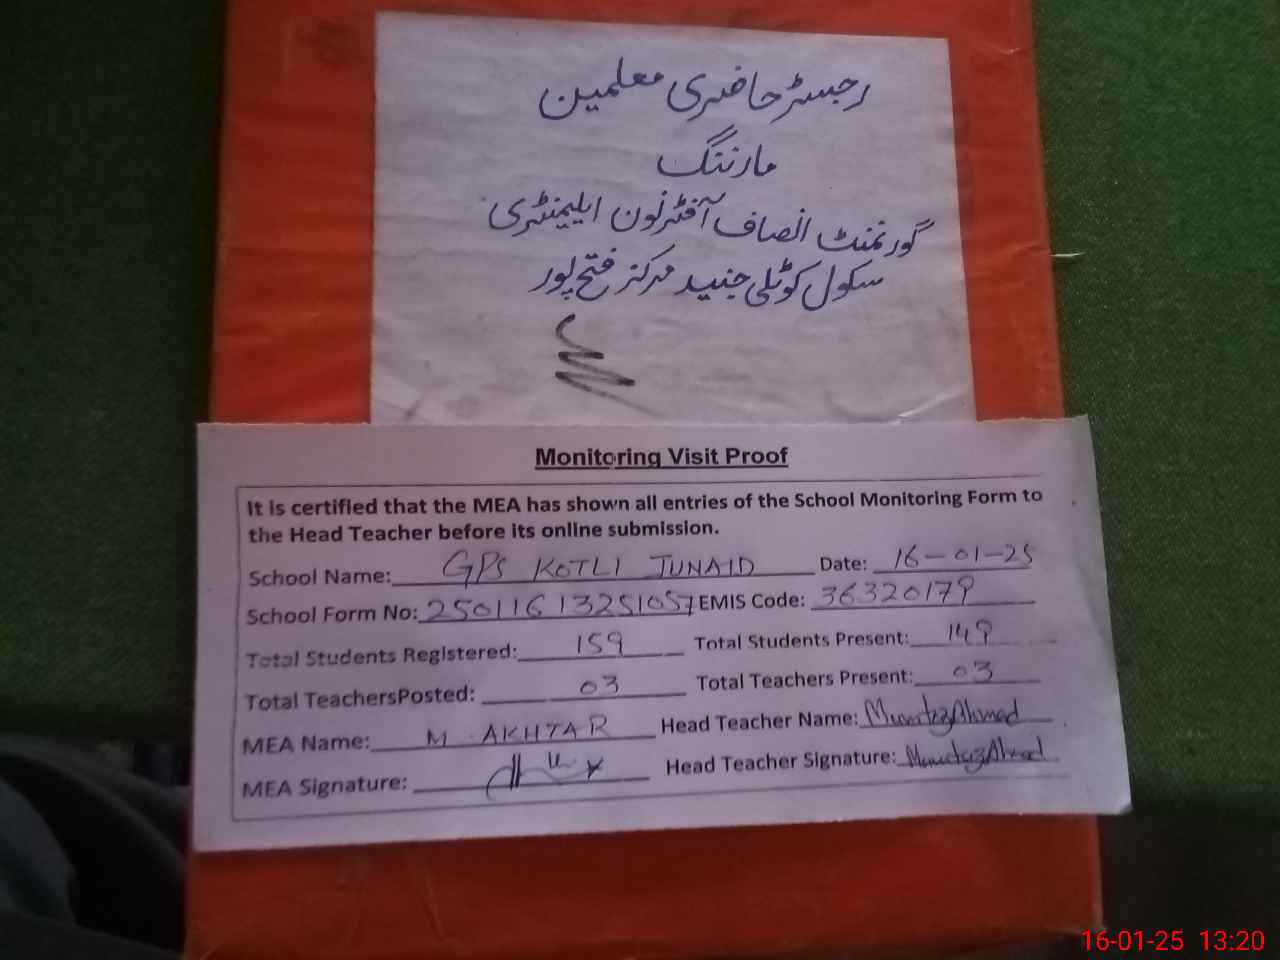 رجسٹر حاضری معلمین
مارننگ
گورنمنٹ انصاف آفٹرنون ایلیمنٹری
سکول کوٹلی جنید مرکز فتح پور
Monitoring Visit Proof
It is certified that the MEA has shown all entries of the School Monitoring Form to
the Head Teacher before its online submission.
School Name: GPS KOTLI JUNAID Date: 16-01-25
School Form No: 25011613251057 EMIS Code: 36320179
Total Students Registered: 159 Total Students Present: 149
Total TeachersPosted: 03 Total Teachers Present: 03
MEA Name: M. AKHTAR Head Teacher Name: Mumtaz Ahmad
MEA Signature: Head Teacher Signature: Mumtaz Ahmad
16-01-25 13:20